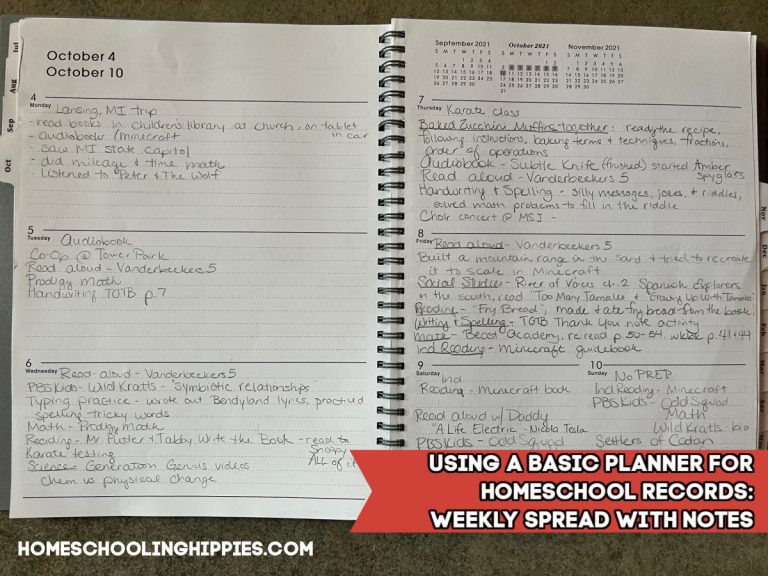 Jul
Aug
Sep
Oct
October 4
October 10
4
Monday
Lansing, MI trip
- read books in children's library at church, on tablet in car
- audiobooks /minecraft
- saw MI state capitol
- did mileage & time math
- listened to "Peter & The Wolf
5
Tuesday
Audiobook
Co-Op @ Tower Park
Read aloud - Vanderbeekers 5
Prodigy math
Handwriting TGTB p. 7
6
Wednesday
Read-aloud - Vanderbeekers 5
PBS Kids - Wild Kratts - "Symbiotic relationships"
Typing practice - wrote out Bendyland lyrics, practiced
spelling tricky words
Math - Prodigy math
Reading - Mr. Putter & Tabby Write the Book - read to
Snoopy
ALL of it
Karate testing
Science - Generation Genius videos
chem vs physical change
September 2021
S M T W T F S
1 2 3 4
5 6 7 8 9 10 11
12 13 14 15 16 17 18
19 20 21 22 23 24 25
26 27 28 29 30
October 2021
S M T W T F S
1 2
3 4 5 6 7 8 9
10 11 12 13 14 15 16
17 18 19 20 21 22 23
24 25 26 27 28 29 30
31
November 2021
S M T W T F S
1 2 3 4 5 6
7 8 9 10 11 12 13
14 15 16 17 18 19 20
21 22 23 24 25 26 27
28 29 30
7
Thursday
Karate class
Baked Zucchini Muffins together: reading the recipe,
following instructions, baking terms & techniques, fractions,
order of operations
Audiobook - Subtle Knife (finished) started Amber
Spyglass
Read aloud - Vanderbeekers 5
Handwriting & Spelling - silly messages, jokes, & riddles,
solved math problems to fill in the riddle
Choir concert @ MSI -
8
Friday
Read aloud - Vanderbeekers 5
Built a mountain range in the sand & tried to recreate
it to scale in Minecraft
Social Studies - River of Voices ch. 2 Spanish Explorers
in the south, read "Too Many Tamales" & "Growing Up With Tamales"
Reading - "Fry Bread", made & ate fry bread from the book
Writing & Spelling - TGTB Thank You note activity
Math - Beast Academy, re-read p. 50-54, wkbk p. 41-44
Ind Reading - Minecraft guidebook
9
Saturday
Ind.
Reading - Minecraft book
Read aloud w/ Daddy
"A Life Electric - Nikola Tesla
PBS Kids - Odd Squad
10
Sunday
No PREP
Ind Reading - Minecraft
PBS Kids - Odd Squad
Math
Wild Kratts bio
Settlers of Catan
Nov
Dec
Jan
Feb
Mar
USING A BASIC PLANNER FOR
HOMESCHOOL RECORDS:
WEEKLY SPREAD WITH NOTES
HOMESCHOOLINGHIPPIES.COM